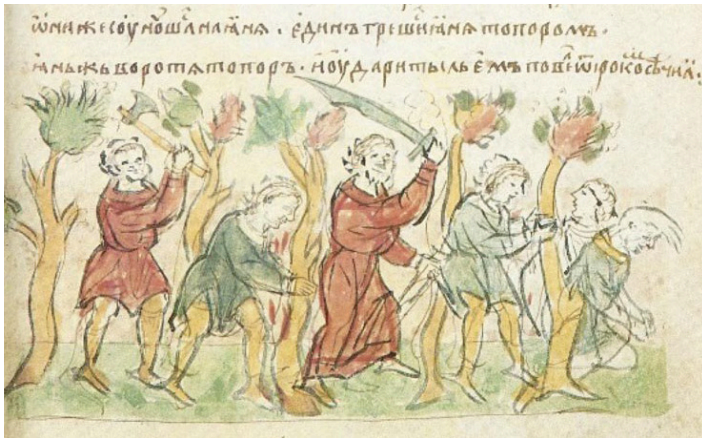 ѡни же соунѹша на ꙗня · єдинъ грєши ꙗня топоромъ ·
ꙗнь жь воротѧ топоръ · и оудари тыльємъ повєлѣ ѿрокоⷨ сѣчи ꙗ :